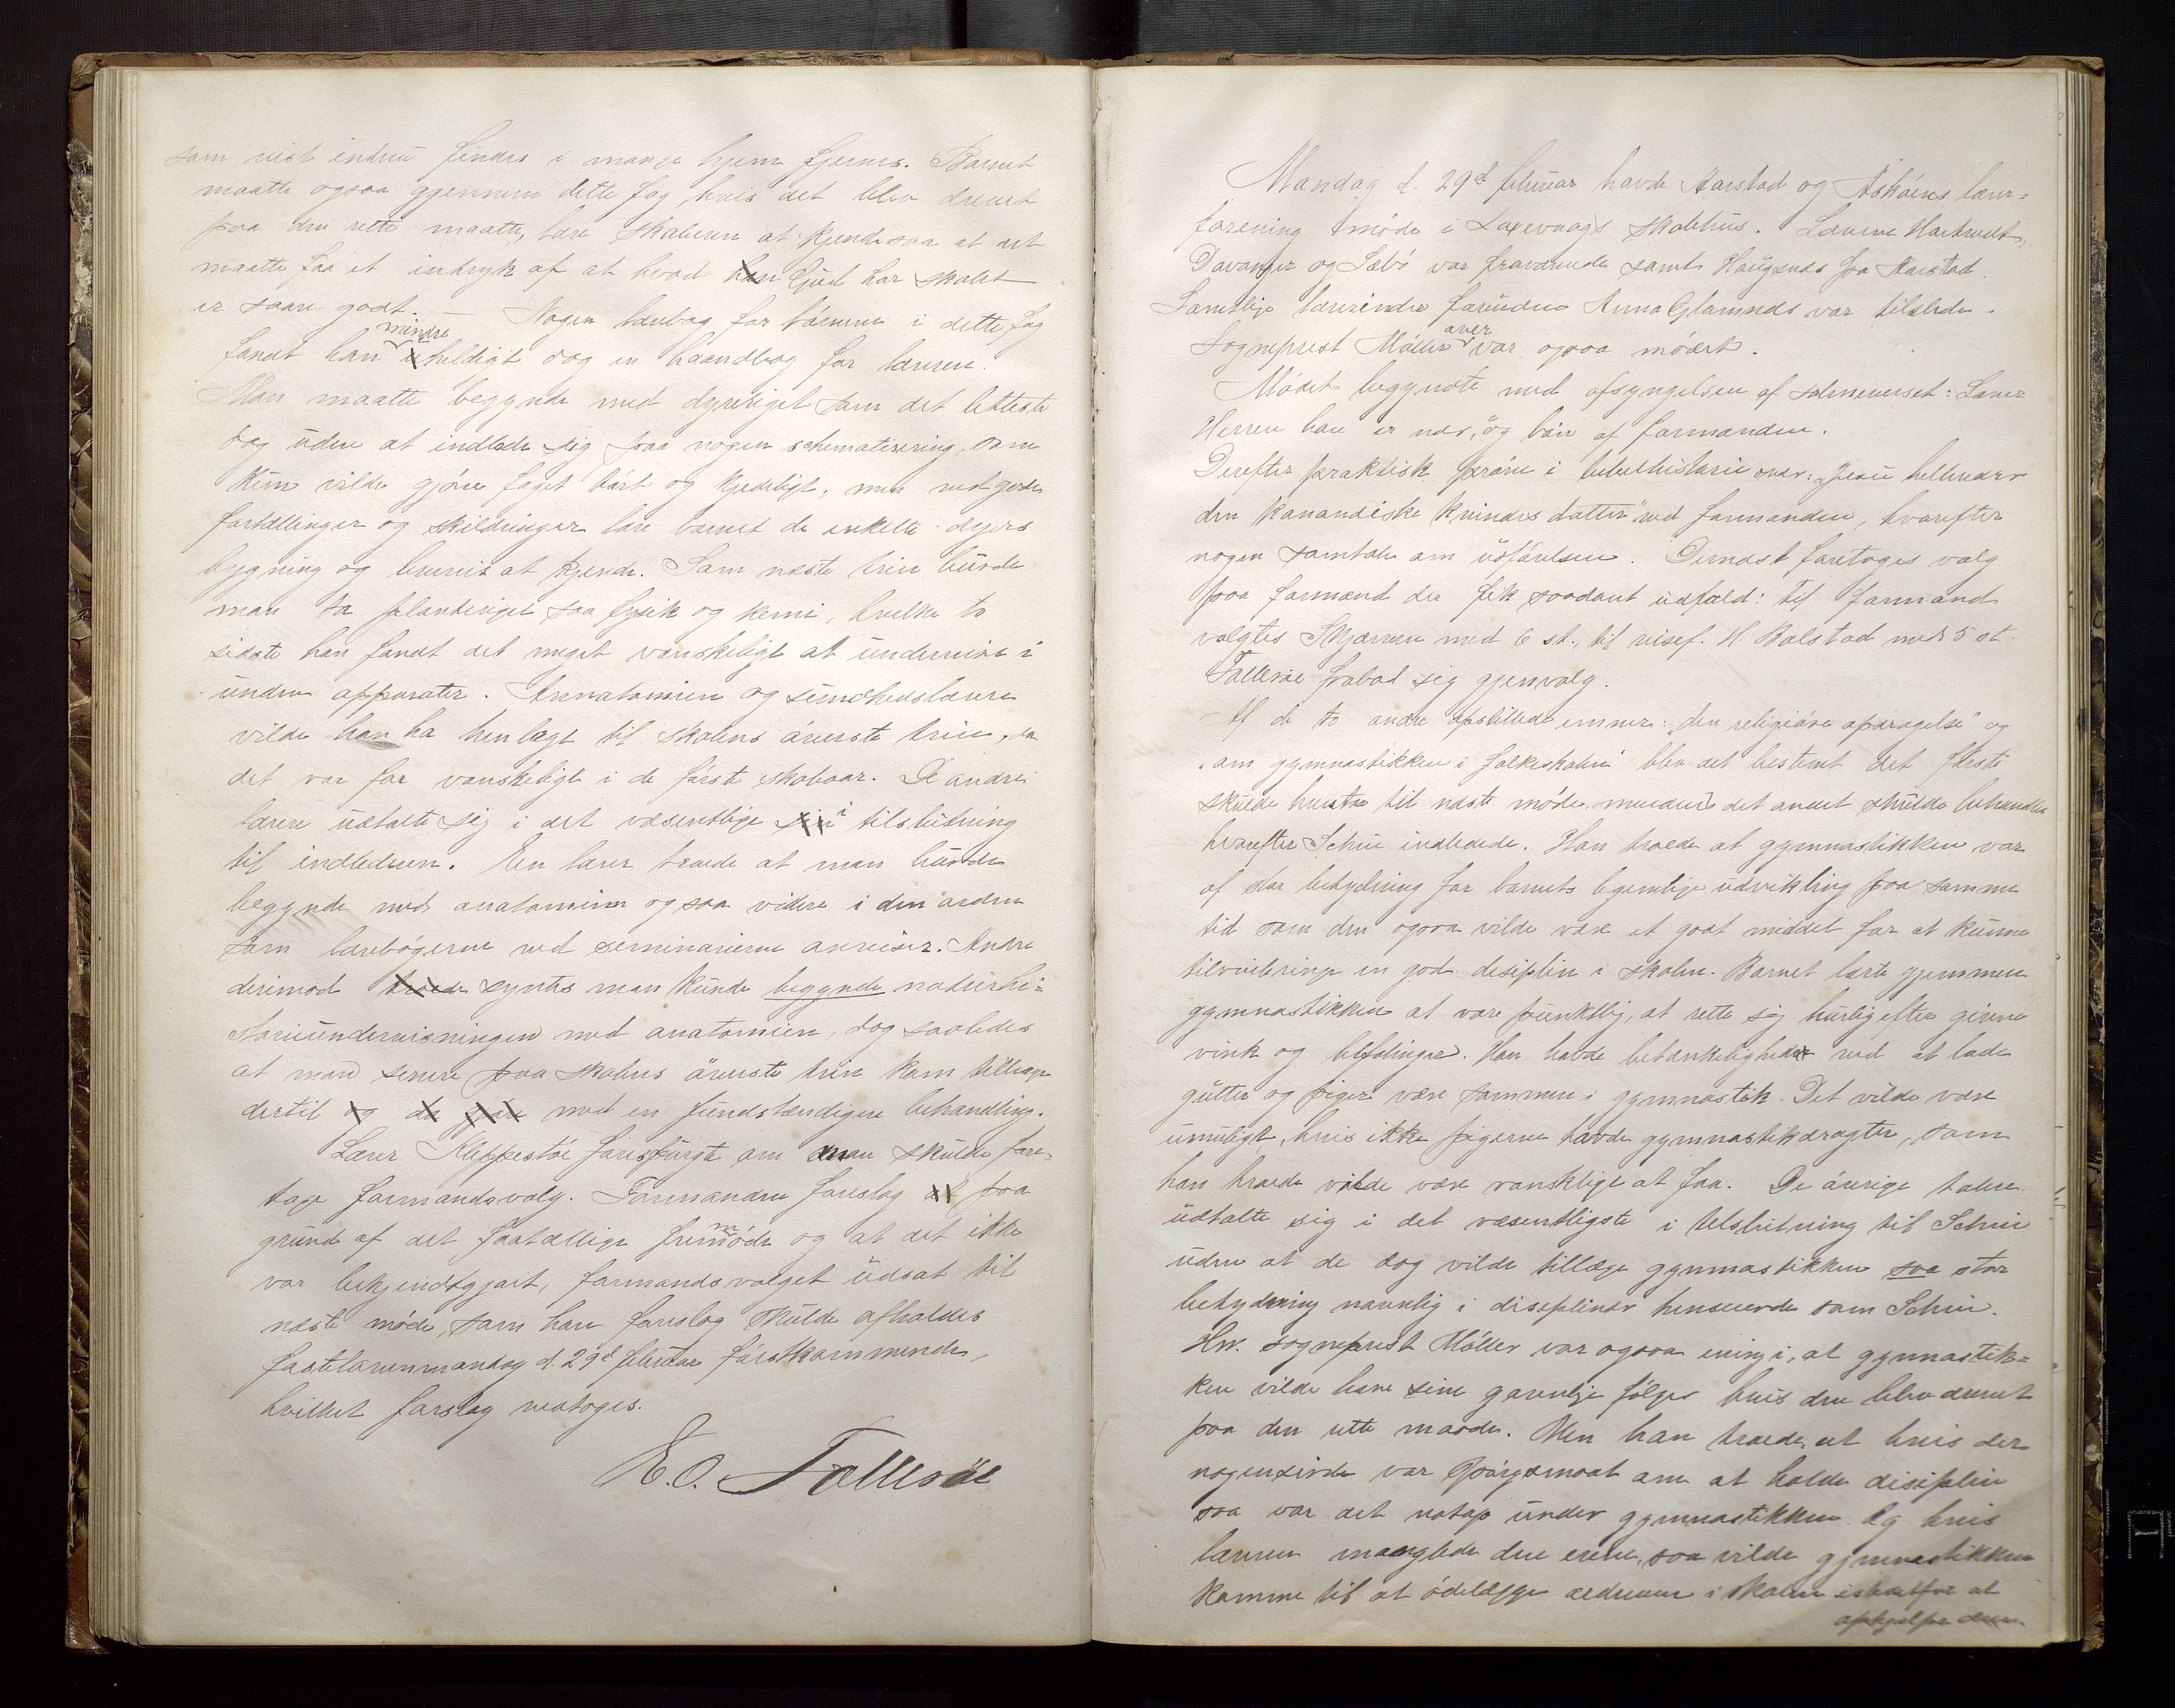 som vist endnu findes i mange hjem fjernes. Barnet
maatte ogsaa gjennem dette fag, hvis det blev drevet
paa den rette maate, lære skaberen at kjende saa at det
maatte faa et indtryk af at hvad Gud har skabt
er saare godt. — Nogen lærebog for börnene i dette fag
fandt han mindre heldigt dog en haandbog for læreren.
Man maatte begynde med dyreriget som det letteste
dog uden at indlade sig paa nogen schematisering, som
kun vilde gjöre faget tört og kjedeligt, men ved gode
fortællinger og skildringer lære barnet de enkelte dyrs
bygning og levevis at kjende. Som næste trin burde
man ta planteriget saa fysik og kemi, hvilke to
sidste han fandt det meget vanskeligt at undervise i
uden apparater. Annatomien og sundhedslæren
vilde han ha henlagt til skolens överste trin, da
det var for vanskeligt i de förste skoleaar. De andre
lærere udtalte sig i det væsentlige i tilslutning
til indlederen. En lærer troede at man burde
begynde med anatomien og saa videre i den orden
som lærebögerne ved seminarierne anviser. Andre
derimod syntes man kunde begynde naturhi=
storieundervisningen med anatomien, dog saaledes
at man senere paa skolens överste trin kom tilbage
dertil med en fundstændigere behandling.
Lærer Kleppestöe forespurgte om man skulde fore=
tage formandsvalg. Formanden foreslog paa
grund af det faatallige fremmöde og at det ikke
var bekjendtgjort, formandsvalget udsat til
næste möde, som han foreslog skulde afholdes
fastelavnmandag d. 29d februar förstkommende,
hvilket forslag vedtoges.
E. O. Tollesöe
Mandag d. 29d februar havde Aarstad og Asköens lærer=
forening möde i Laxevaags skolehus. Lærerne Harkvelt,
Davanger og Sæbö var fraværende samt Haugsnæs fra Aarstad.
Samtlige lærerinder foruden Anna Glamnæs var tilstede.
Sogneprest Möller over var ogsaa mödt.
Mödet begyndte med afsyngelsen af salmeverset: Lover
Herren han er nær," og bön af formanden.
Derefter praktisk pröve i bibelhistorie over: „Jesu helbreder
den kananæiske kvindes datter" ved formanden, hvorefter
nogen samtale om udförelsen. Dernæst foretoges valg
paa formand der fik saadant udfald: til formand
valgtes Skjærven med 6 st., til visef. H. Bolstad med 5 st.
Tollesöe frabad sig gjenvalg.
Af de to andre opstillede emner: „den religiöse opdragelse" og
„om gymnastikken i folkeskolen" blev det bestemt det förste
skulde hvile til næste möde, medens det andet skulde behandles
hvorefter Schue indledede. Han troede at gymnastikken var
af stor betydning for barnets legemlige udvikling paa samme
tid som den ogsaa vilde være et godt middel for at kunne
tilveiebringe en god disiplin i skolen. Barnet lærte gjennem
gymnastikken at være punktlig, at rette sig hurtig efter givne
vink og befalinger. Han havde betænkeligheder ved at lade
gutter og piger være sammen i gymnastik. Det vilde være
umuligt, hvis ikke pigerne havde gymnastikdragter, som
han troede vilde være vanskelige at faa. De övrige talere
udtalte sig i det væsentligste i tilslutning til Schue
uden at de dog vilde tillægge gymnastikken saa stor
betydning navnlig i disiplinær henseende som Schue.
Hr. sogneprest Möller var ogsaa enig i, at gymnastik=
ken vilde have sine gavnlige fölger hvis den blev drevet
paa den rette maade. Men han troede, at hvis der
nogensinde var spörgsmaal om at holde disiplin
saa var det netop under gymnastikken. Og hvis
læreren manglede den evne, saa vilde gymnastikken
komme til at ödelægge ordenen i skolen istedetfor at
ophjelpe den.